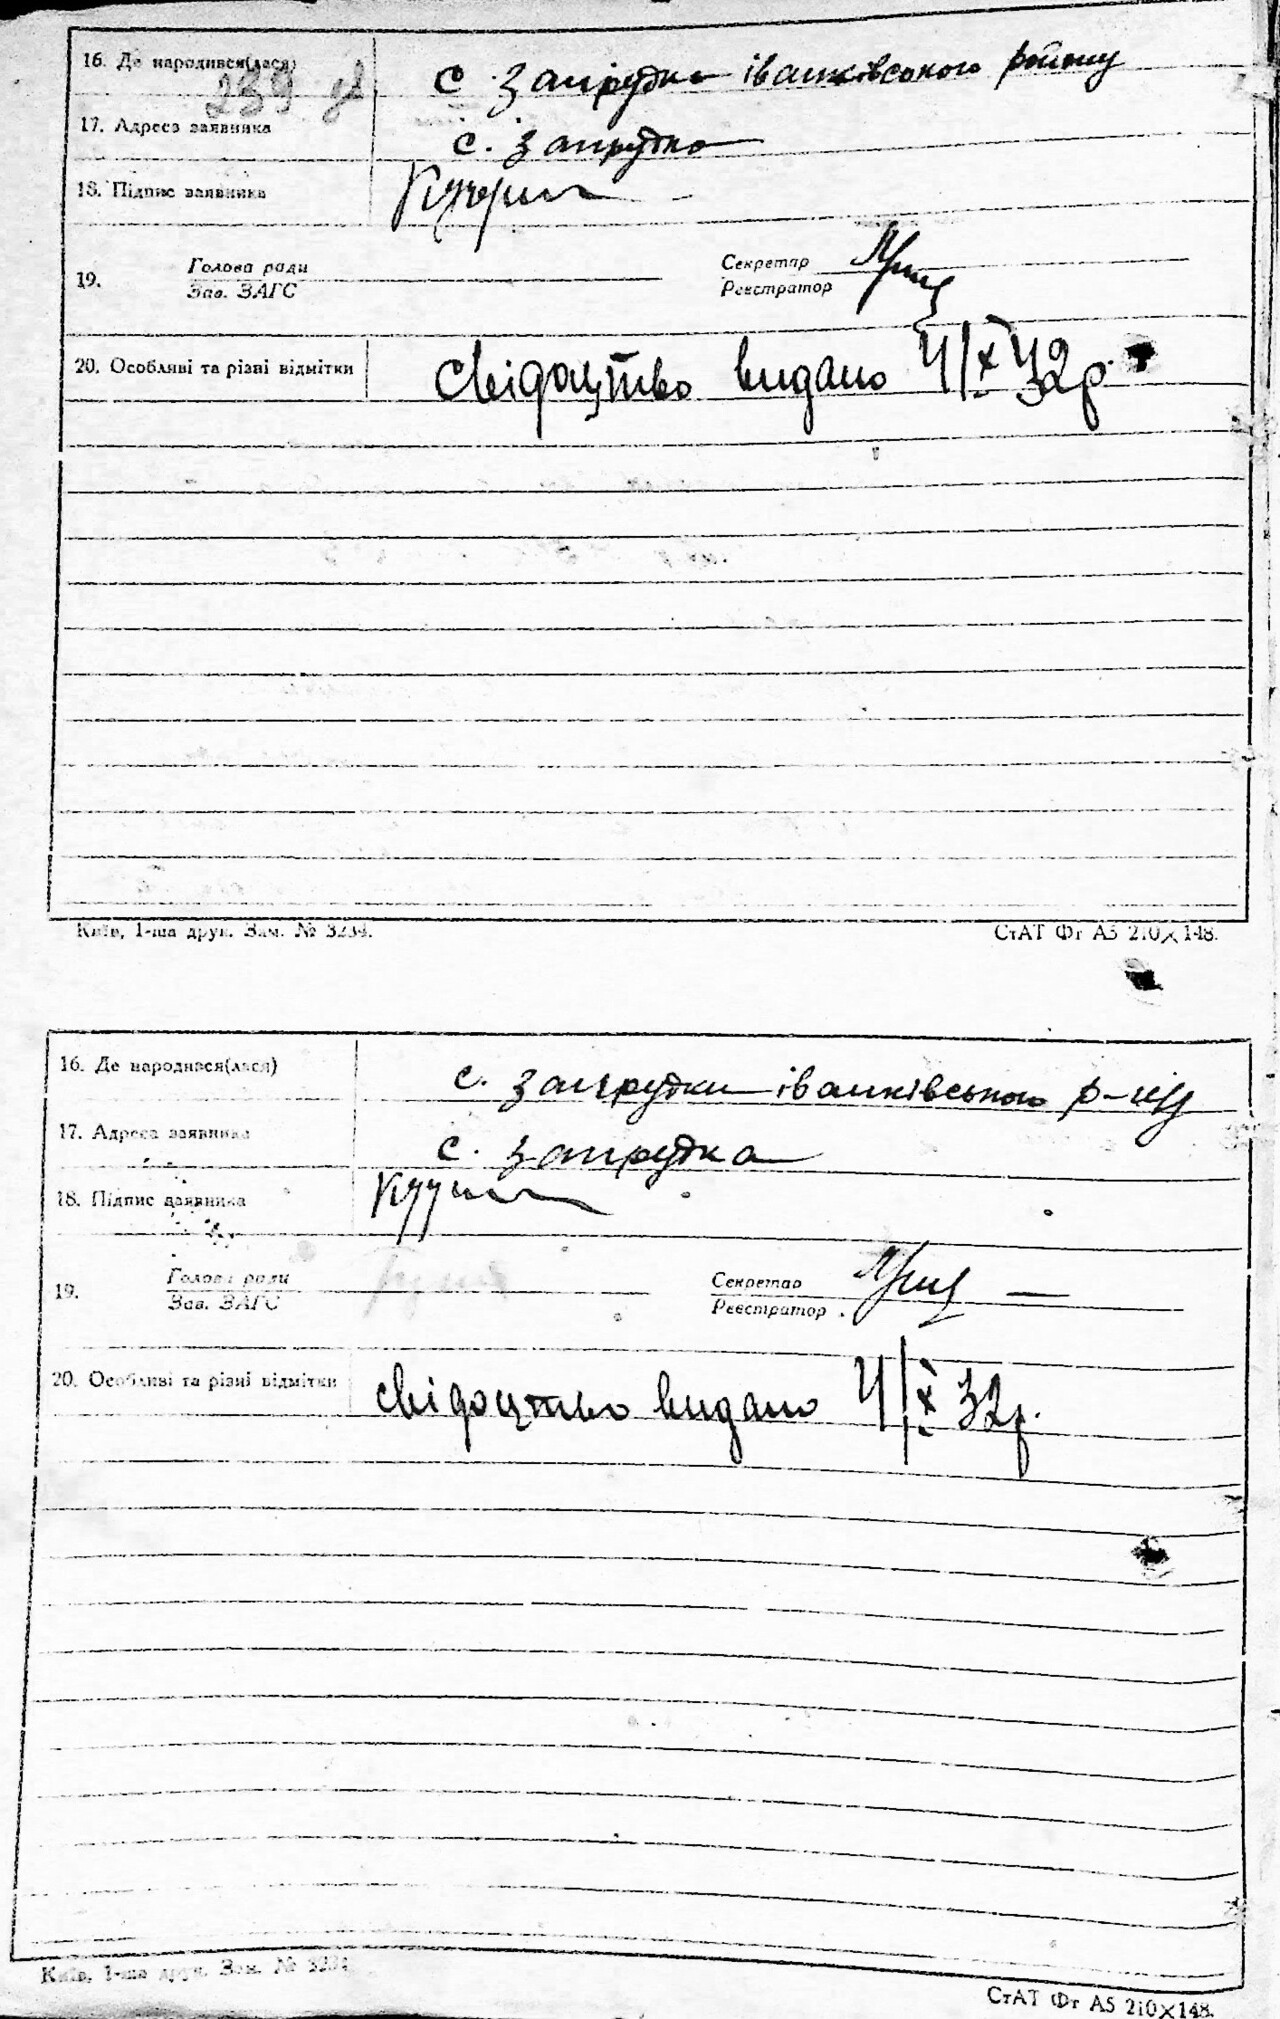 16. Де народився(лася) с. Запрудка іванківського району
239
17. Адреса заявника с. Запрудка
18. Підпис заявника
19. Голова ради Секретар
Зав. ЗАГС Реєстратор
20. Особливі та різні відмітки свідоцтво видано 4/IX 32р.
Київ, 1-ша друк. Зам. № 3234. СтАТ Фт А5 210×148.
16. Де народився(лася) с. Запрудки іванківського р-ну
17. Адреса заявника с. Запрудка
18. Підпис заявника
19. Голова ради Секретар
Зав. ЗАГС Реєстратор
20. Особливі та різні відмітки свідоцтво видано 4/IX 32р.
Київ, 1-ша друк. Зам. № 3234 СтАТ Фт А5 210×148.